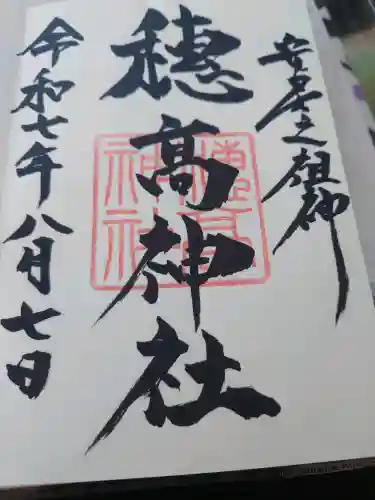 安曇之祖神
穂高神社
令和七年八月七日